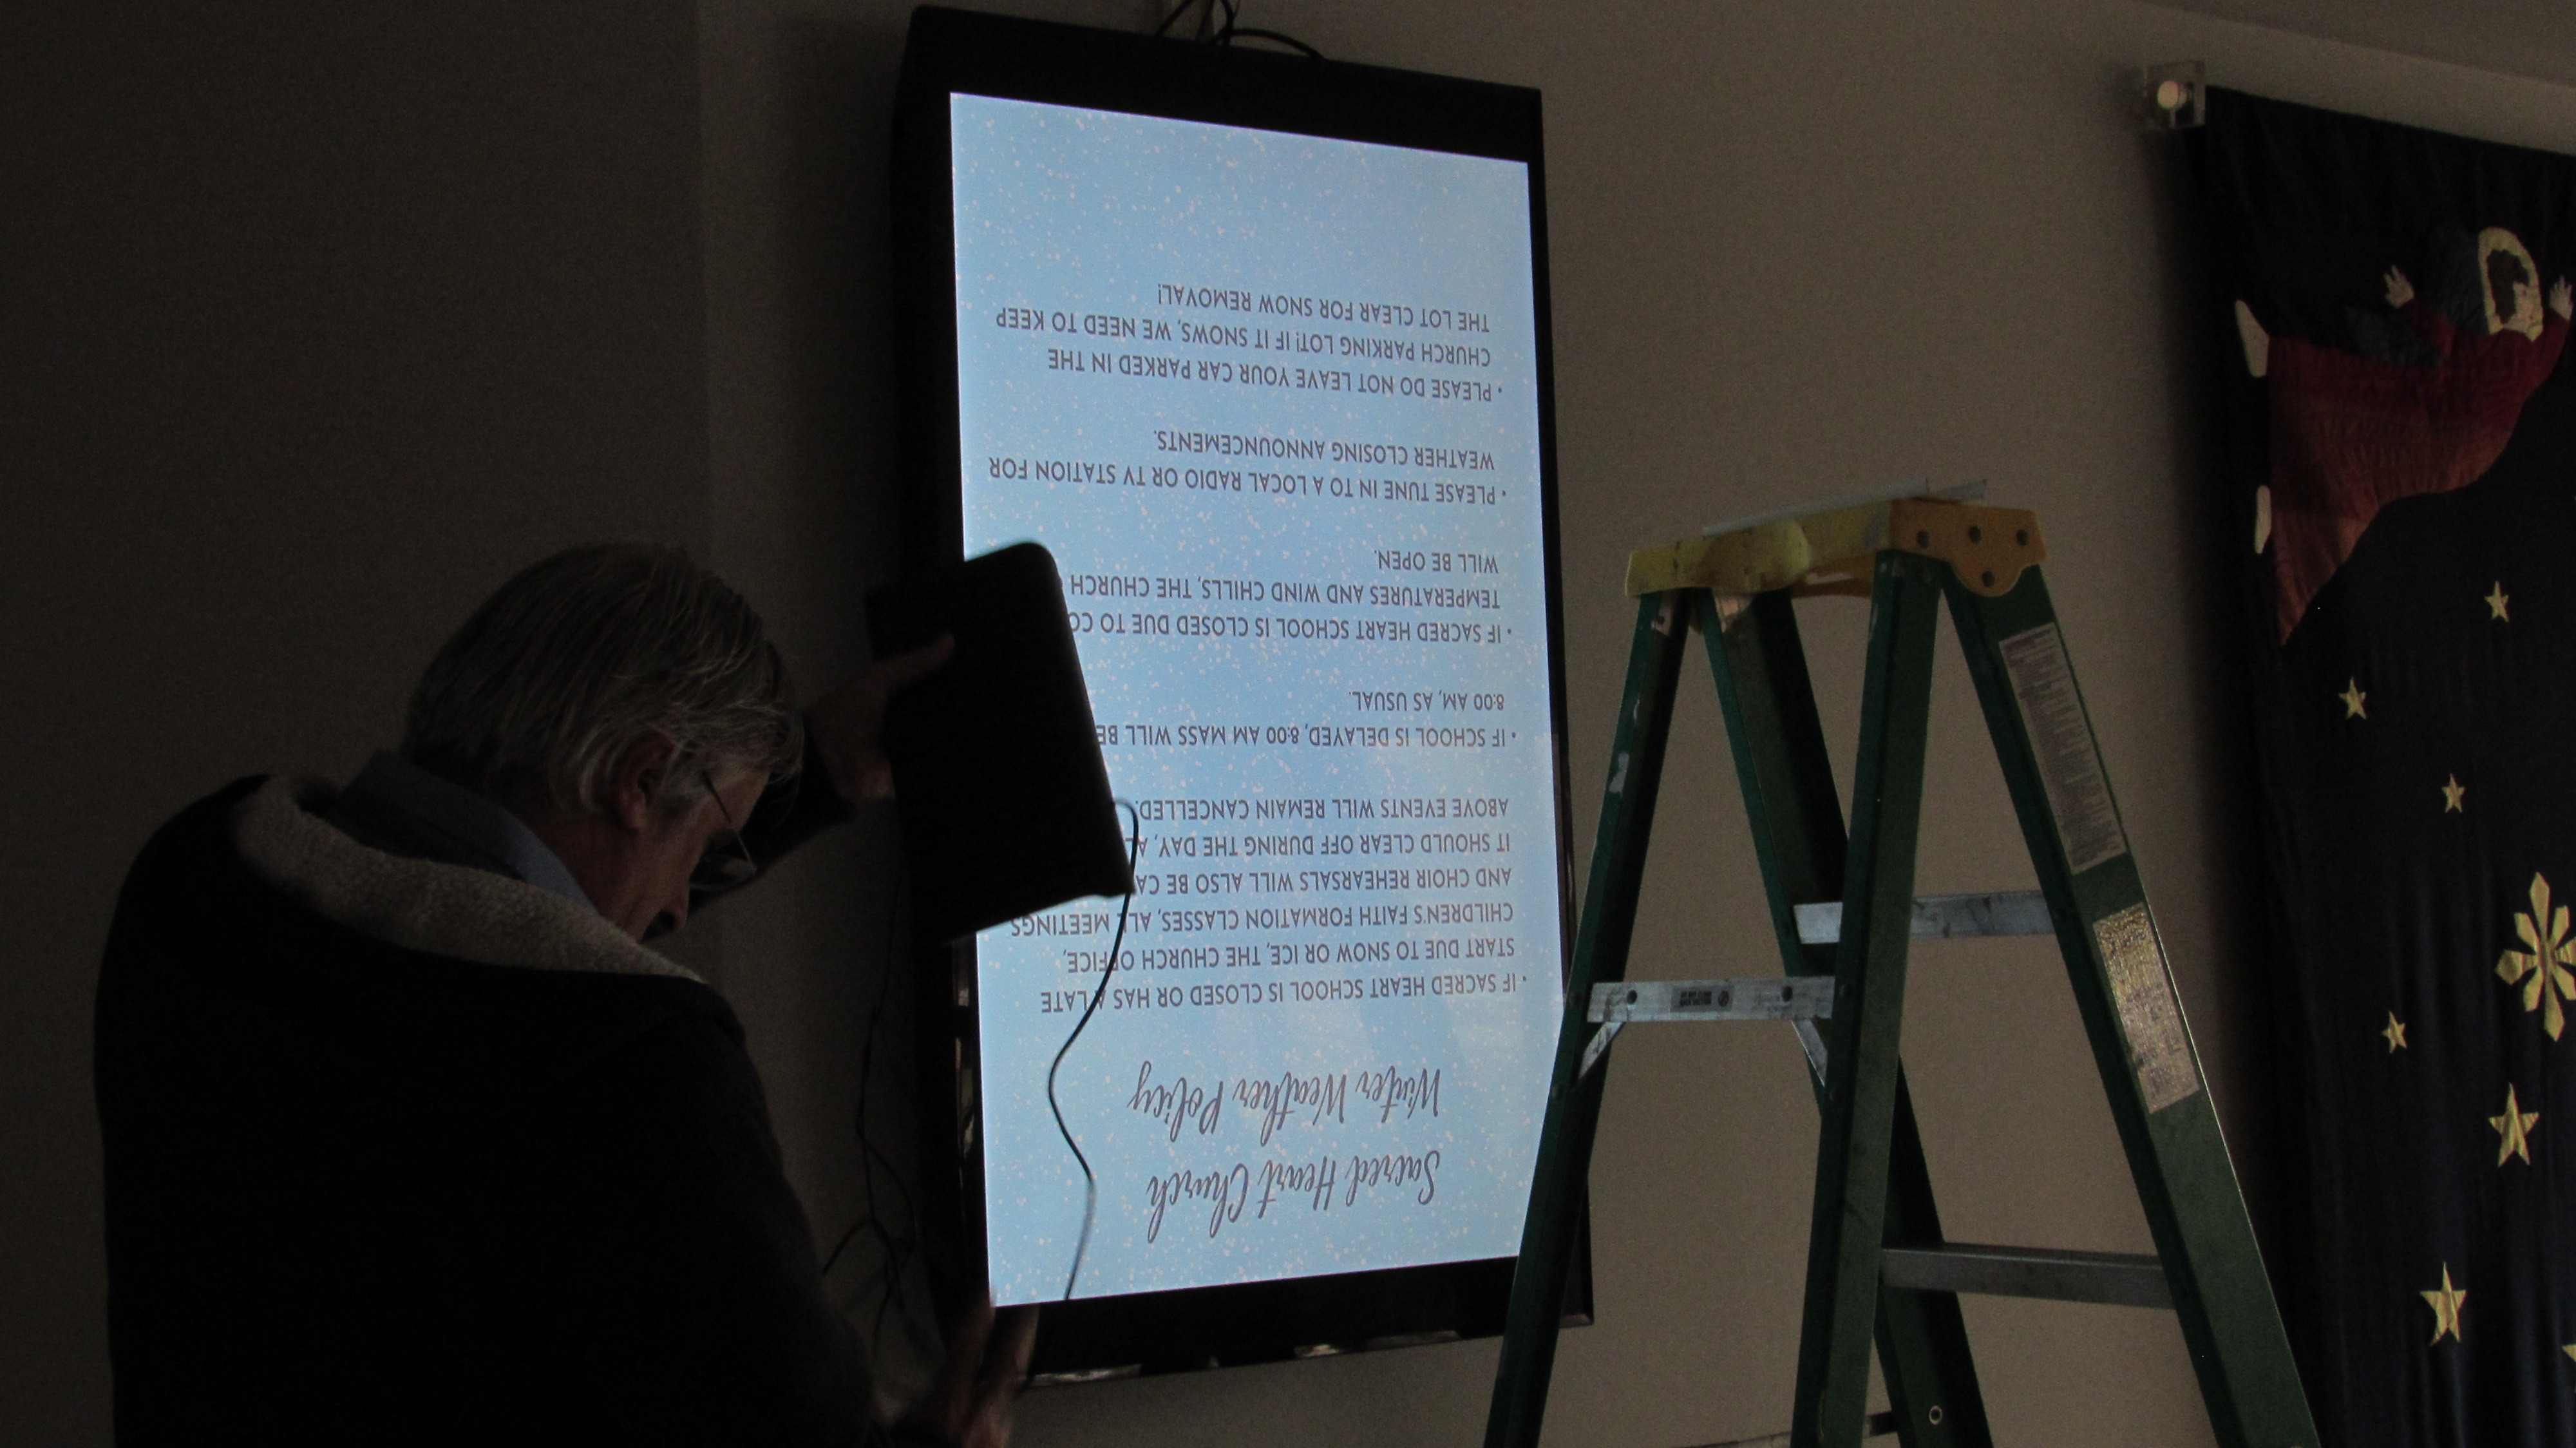 Sacred Heart Church
Winter Weather Policy
• IF SACRED HEART SCHOOL IS CLOSED OR HAS A LATE
START DUE TO SNOW OR ICE, THE CHURCH OFFICE,
CHILDREN'S FAITH FORMATION CLASSES, ALL MEETINGS
AND CHOIR REHEARSALS WILL ALSO BE
IT SHOULD CLEAR OFF DURING THE DAY,
ABOVE EVENTS WILL REMAIN CANCELLED.
• IF SCHOOL IS DELAYED, 8:00 AM MASS WILL BE
8:00 AM, AS USUAL.
• IF SACRED HEART SCHOOL IS CLOSED DUE TO
TEMPERATURES AND WIND CHILLS, THE CHURCH
WILL BE OPEN.
• PLEASE TUNE IN TO A LOCAL RADIO OR TV STATION FOR
WEATHER CLOSING ANNOUNCEMENTS.
• PLEASE DO NOT LEAVE YOUR CAR PARKED IN THE
CHURCH PARKING LOT! IF IT SNOWS, WE NEED TO KEEP
THE LOT CLEAR FOR SNOW REMOVAL!